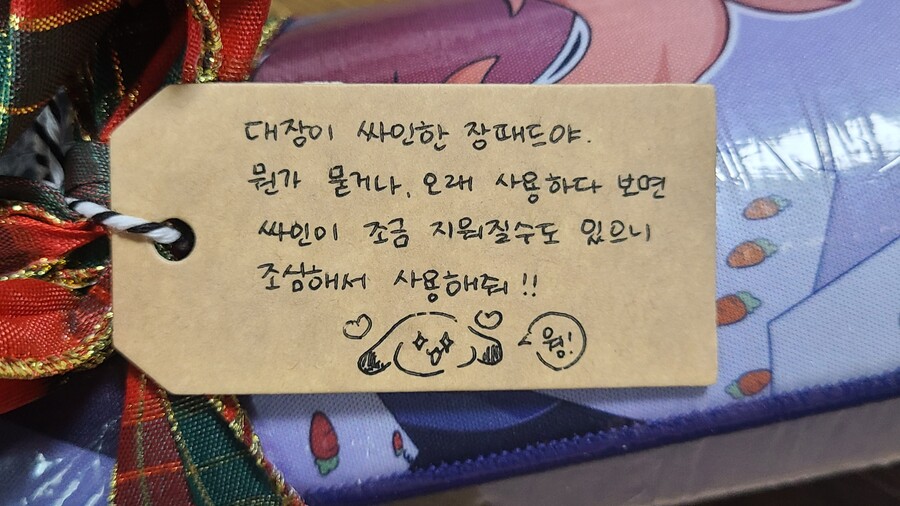 대장이 싸인한 장패드야.
뭔가 묻거나, 오래 사용하다 보면
싸인이 조금 지워질수도 있으니
조심해서 사용해줘!!
웡!